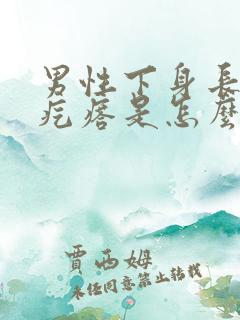 男性下身長
疙瘩是怎麼
賈西姆
未经同意禁止转载